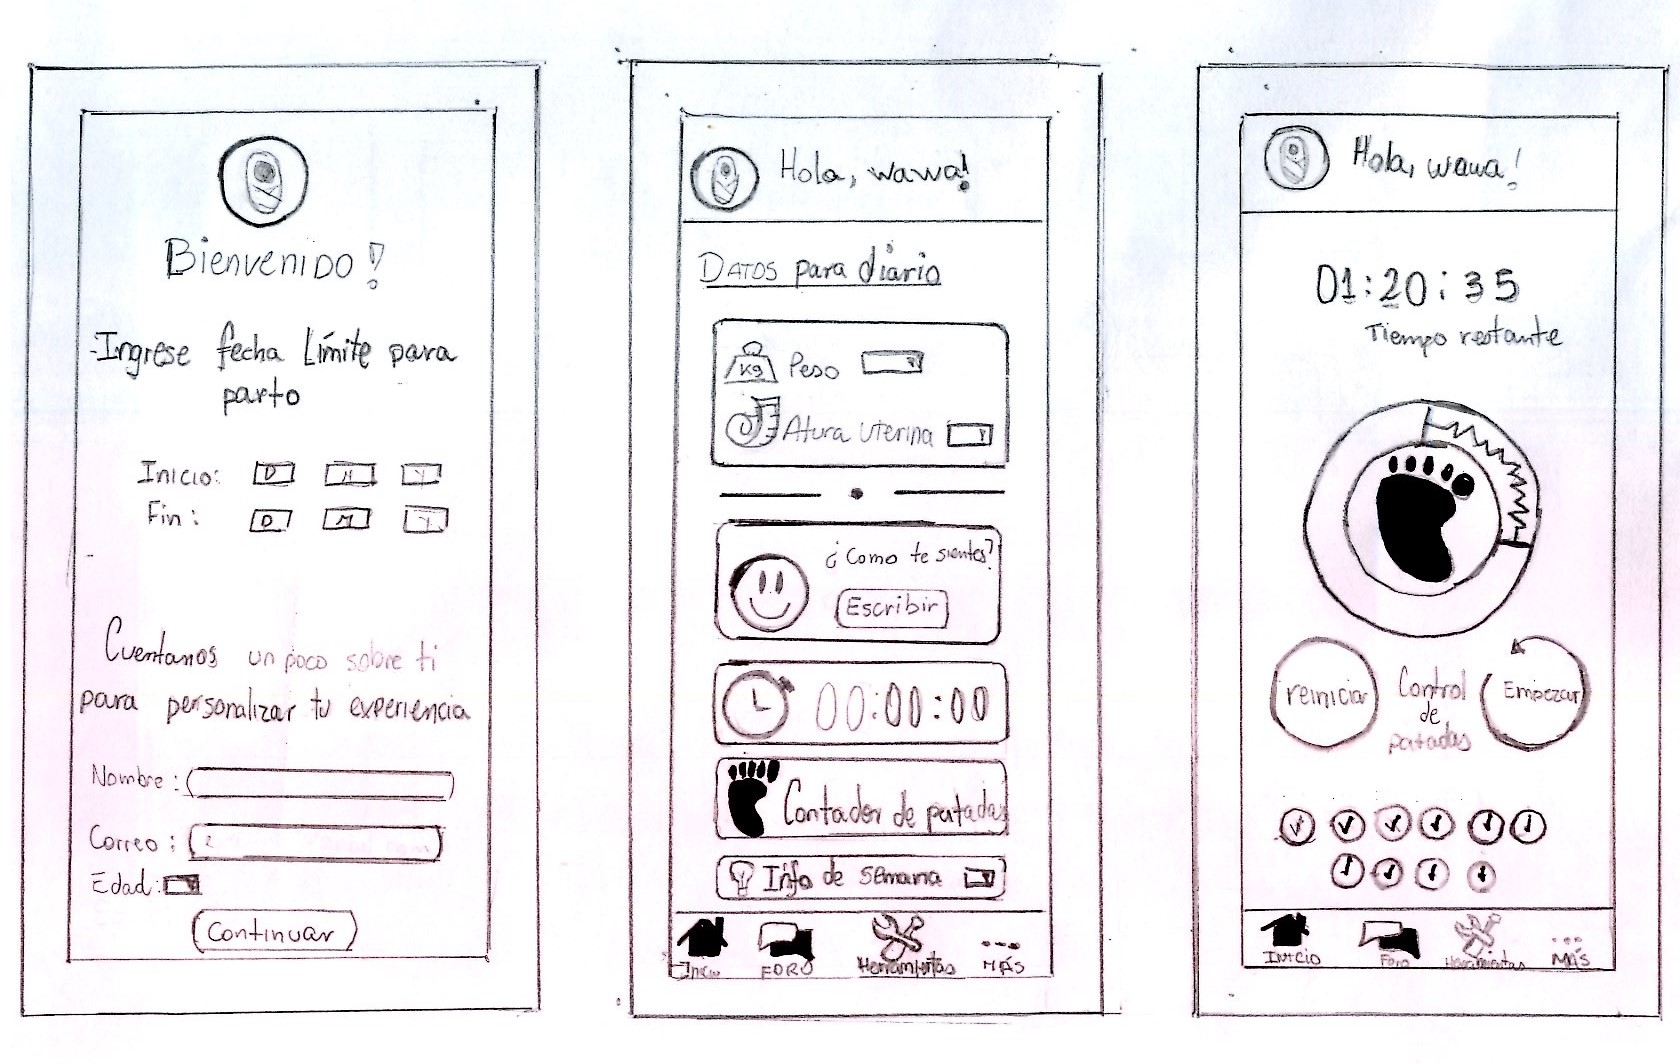 Bienvenido!
Ingrese fecha Límite para
parto
Inicio: D M Y
Fin: D M Y
Cuentanos un poco sobre ti
para personalizar tu experiencia
Nombre:
Correo:
Edad:
Continuar
Hola, wawa!
Datos para diário
Kg Peso
Atura Uterina
¿Como te sientes?
Escribir
00:00:00
Contador de patadas
Info de semana
Inicio FORO Herramientas MÁS
Hola, wawa!
01:20:35
Tiempo restante
reiniciar Control de patadas Empezar
Inicio Foro Herramientas MÁS